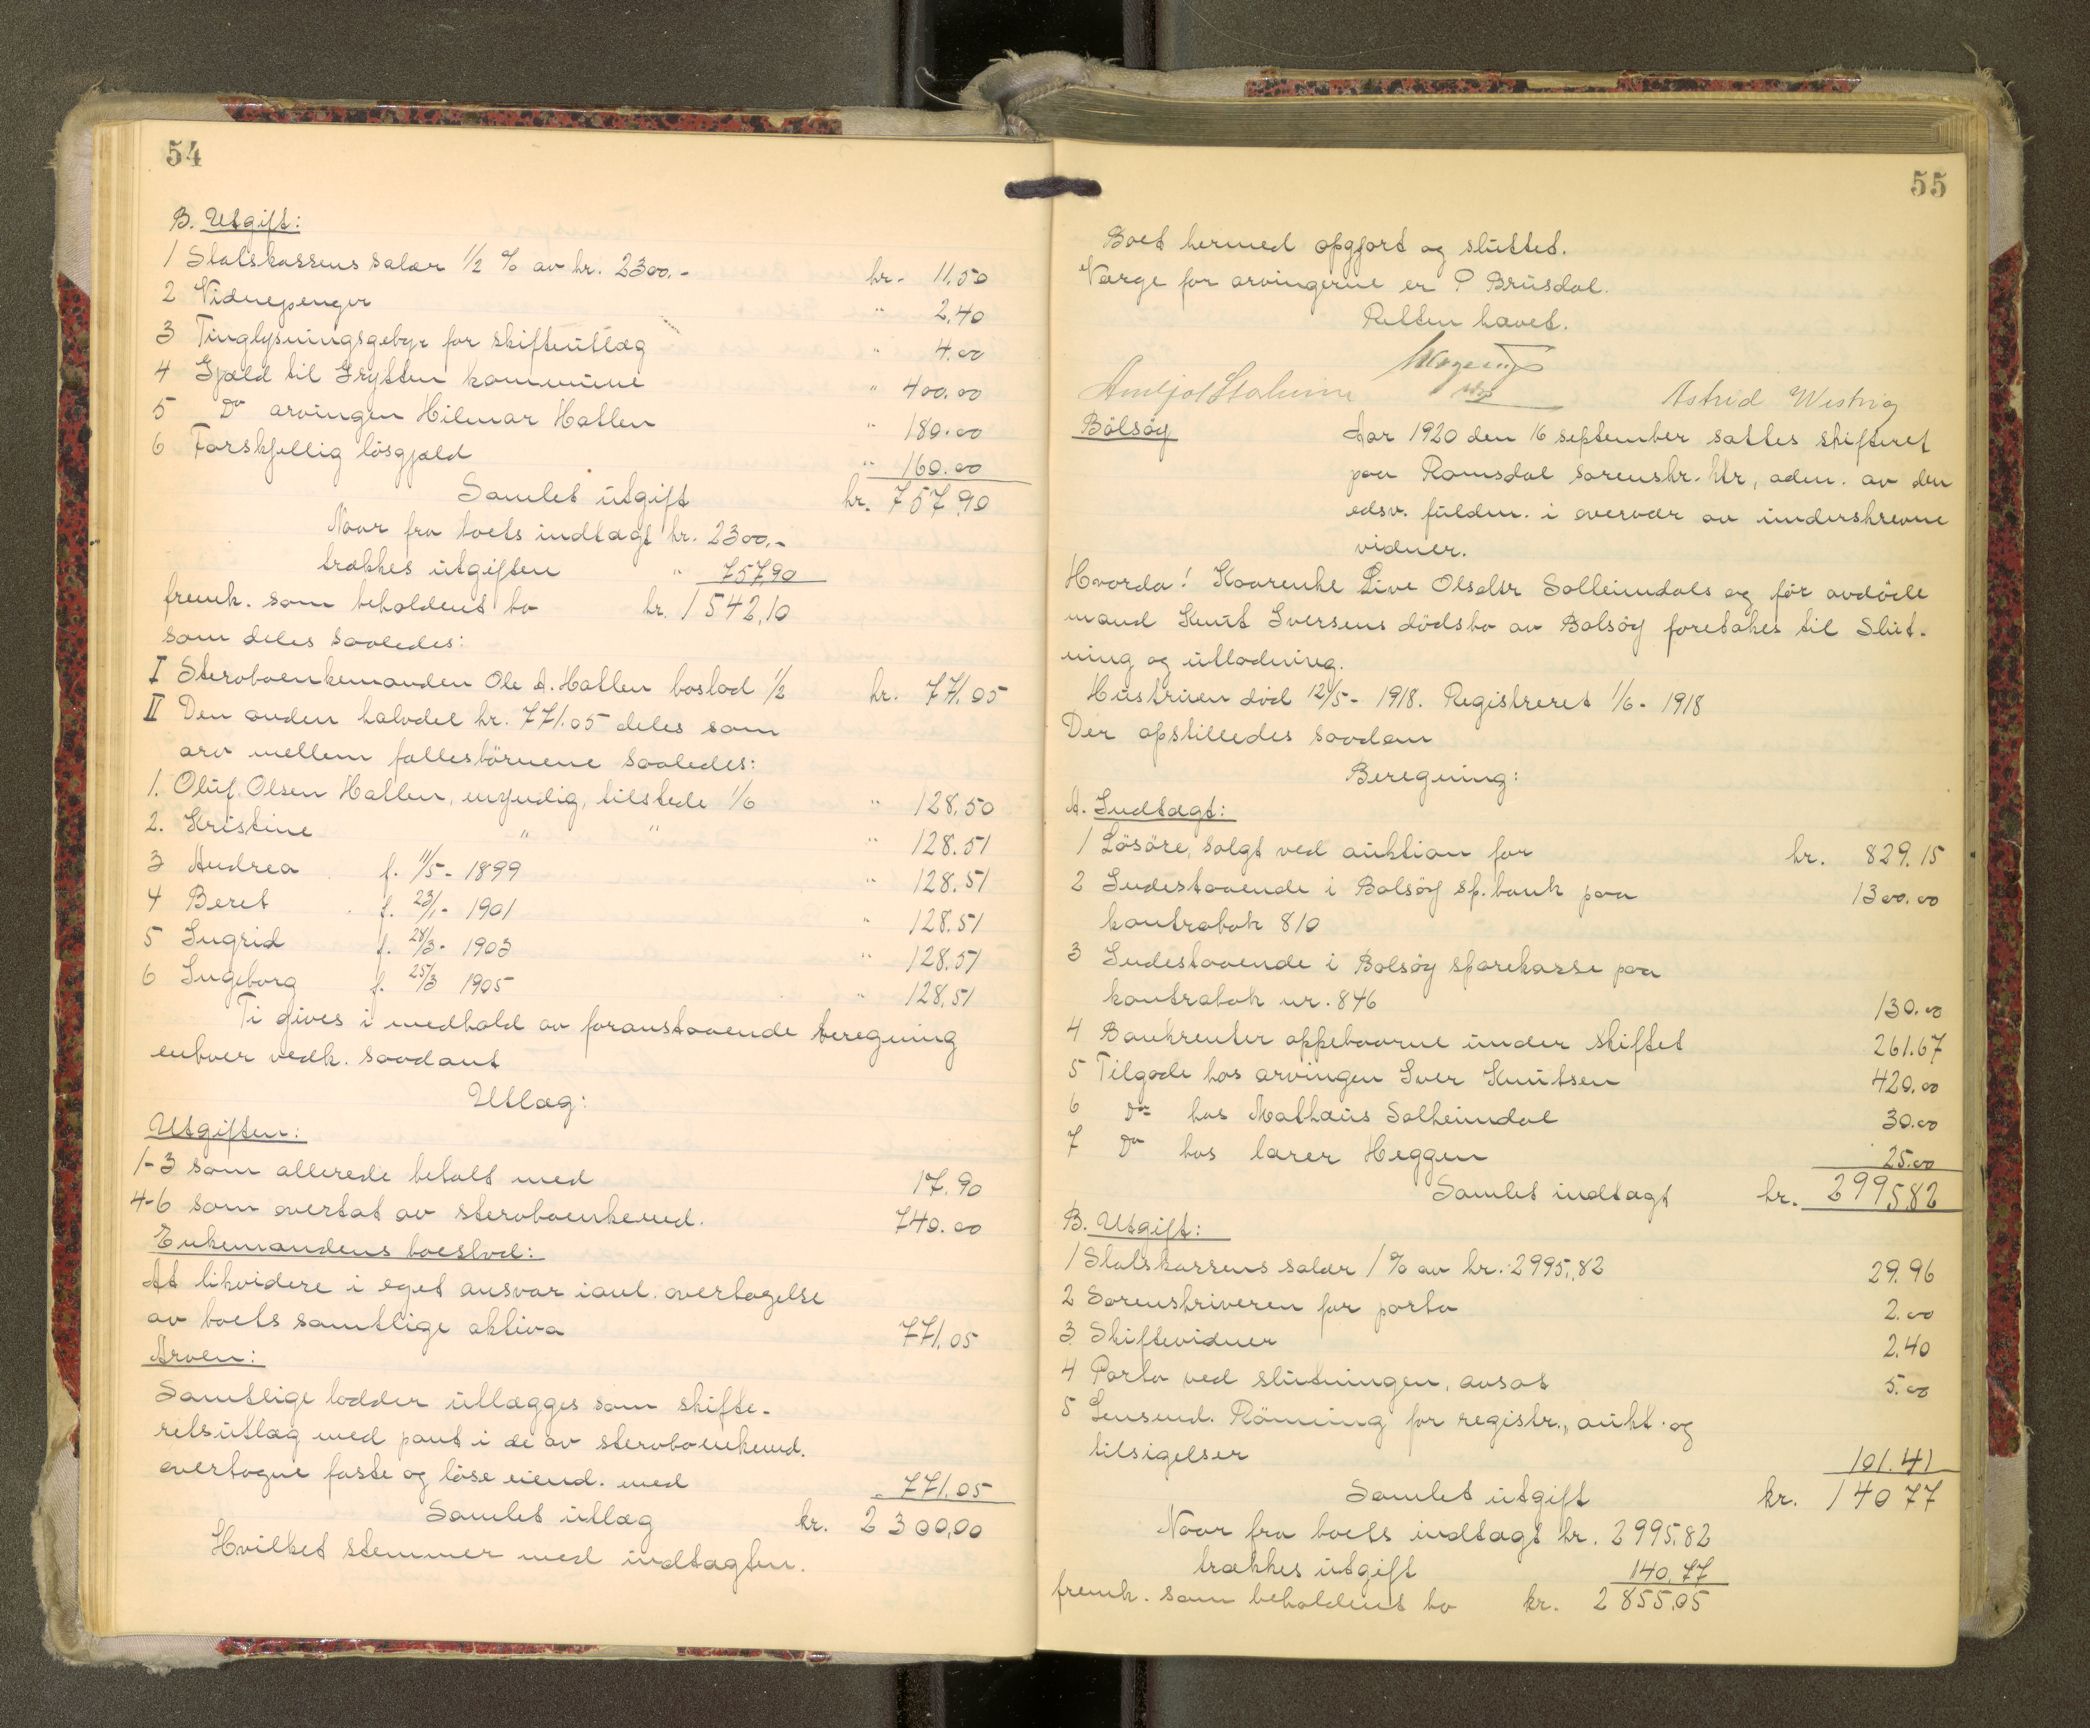 54
B. Utgift:
1 Statskassens salær 1/2 % av kr. 2300.- kr. 11,50
2 Vidnepenger " 2,40
3 Tinglysningsgebyr for skifteutlæg " 4.00
4 Gjæld til Grytten kommune " 400.00
5 Do arvingen Hilmar Hatlen " 180.00
6 Forskjellig løsgjæld " 160.00
Samlet utgift kr. 757,90
Naar fra boets indtægt kr. 2300.-
trækkes utgiften " 757,90
fremk. som beholdent bo kr. 1542,10
som deles saaledes:
I Stervboenkemanden Ole A. Hatlen boslod 1/2 kr. 771.05
II Den anden halvdel kr. 771.05 deles som
arv mellem fællesbörnene saaledes:
1. Oluf Olsen Hatlen, myndig, tilstede 1/6 " 128,50
2. Kristine " " " 128.51
3 Andrea f. 11/5- 1899 " 128.51
4 Beret f. 23/1- 1901 " 128.51
5 Ingrid f. 28/3- 1903 " 128.51
6 Ingeborg f. 25/3 1905 " 128,51
Ti gives i medhold av foranstaaende beregning
enhver vedk. saadant
Utlæg:
Utgiften:
1-3 som allerede betalt med 17.90
4-6 som overtat av stervboenkemd. 740.00
Enkemandens boeslod:
At likvidere i eget ansvar ianl. overtagelse
av boets samtlige aktiva 771,05
Arven:
Samtlige lodder utlægges som skifte-
retsutlæg med pant i de av stervboenkemd.
overtagne faste og løse eiend. med " 771.05
Samlet utlæg kr. 2300,00
Hvilket stemmer med indtægten.
55
Boet hermed opgjort og sluttet.
Værge for arvingerne er P Brusdal.
Retten hævet.
Astrid Westvig
Bölsöy
Aar 1920 den 16 september sattes skifteret
paa Romsdal sorenskr. ktr, adm. av den
edsv. fuldm. i overvær av underskrevne
vidner.
Hvorda! Kaarenke Live Olsdtr Solheimdals og för avdöde
mand Knut Iversens dödsbo av Bolsöy foretakes til Slut-
ning og utlodning.
Hustruen död 12/5- 1918. Registreret 1/6- 1918
Der opstilledes saadan
Beregning:
A. Indtægt:
1 Lösöre, solgt ved auktion for kr. 829.15
2 Indestaaende i Bolsöy sp.bank paa 1300.00
kontrabok 810
3 Indestaaende i Bolsöy sparekasse paa
kontrabok nr. 846 130.00
4 Bankrenter oppebaarne under skiftet 261.67
5 Tilgode hos arvingen Iver Knutsen 420.00
6 do hos Mathæus Solheimdal 30.00
7 do hos lærer Heggen 25.00
Samlet indtægt kr. 2995.82
B. Utgift:
1 Statskassens salær 1 % av kr. 2995,82 29.96
2 Sorenskriveren for porto 2.00
3 Skiftevidner 2.40
4 Porto ved slutningen, avsat 5.00
5 Lensmd. Rönning for registr., aukt. og
tilsigelser 101.41
Samlet utgift kr. 140 77
Naar fra boets indtægt kr. 2995.82
trækkes utgift 140.77
fremk. som beholdent bo kr. 2855.05